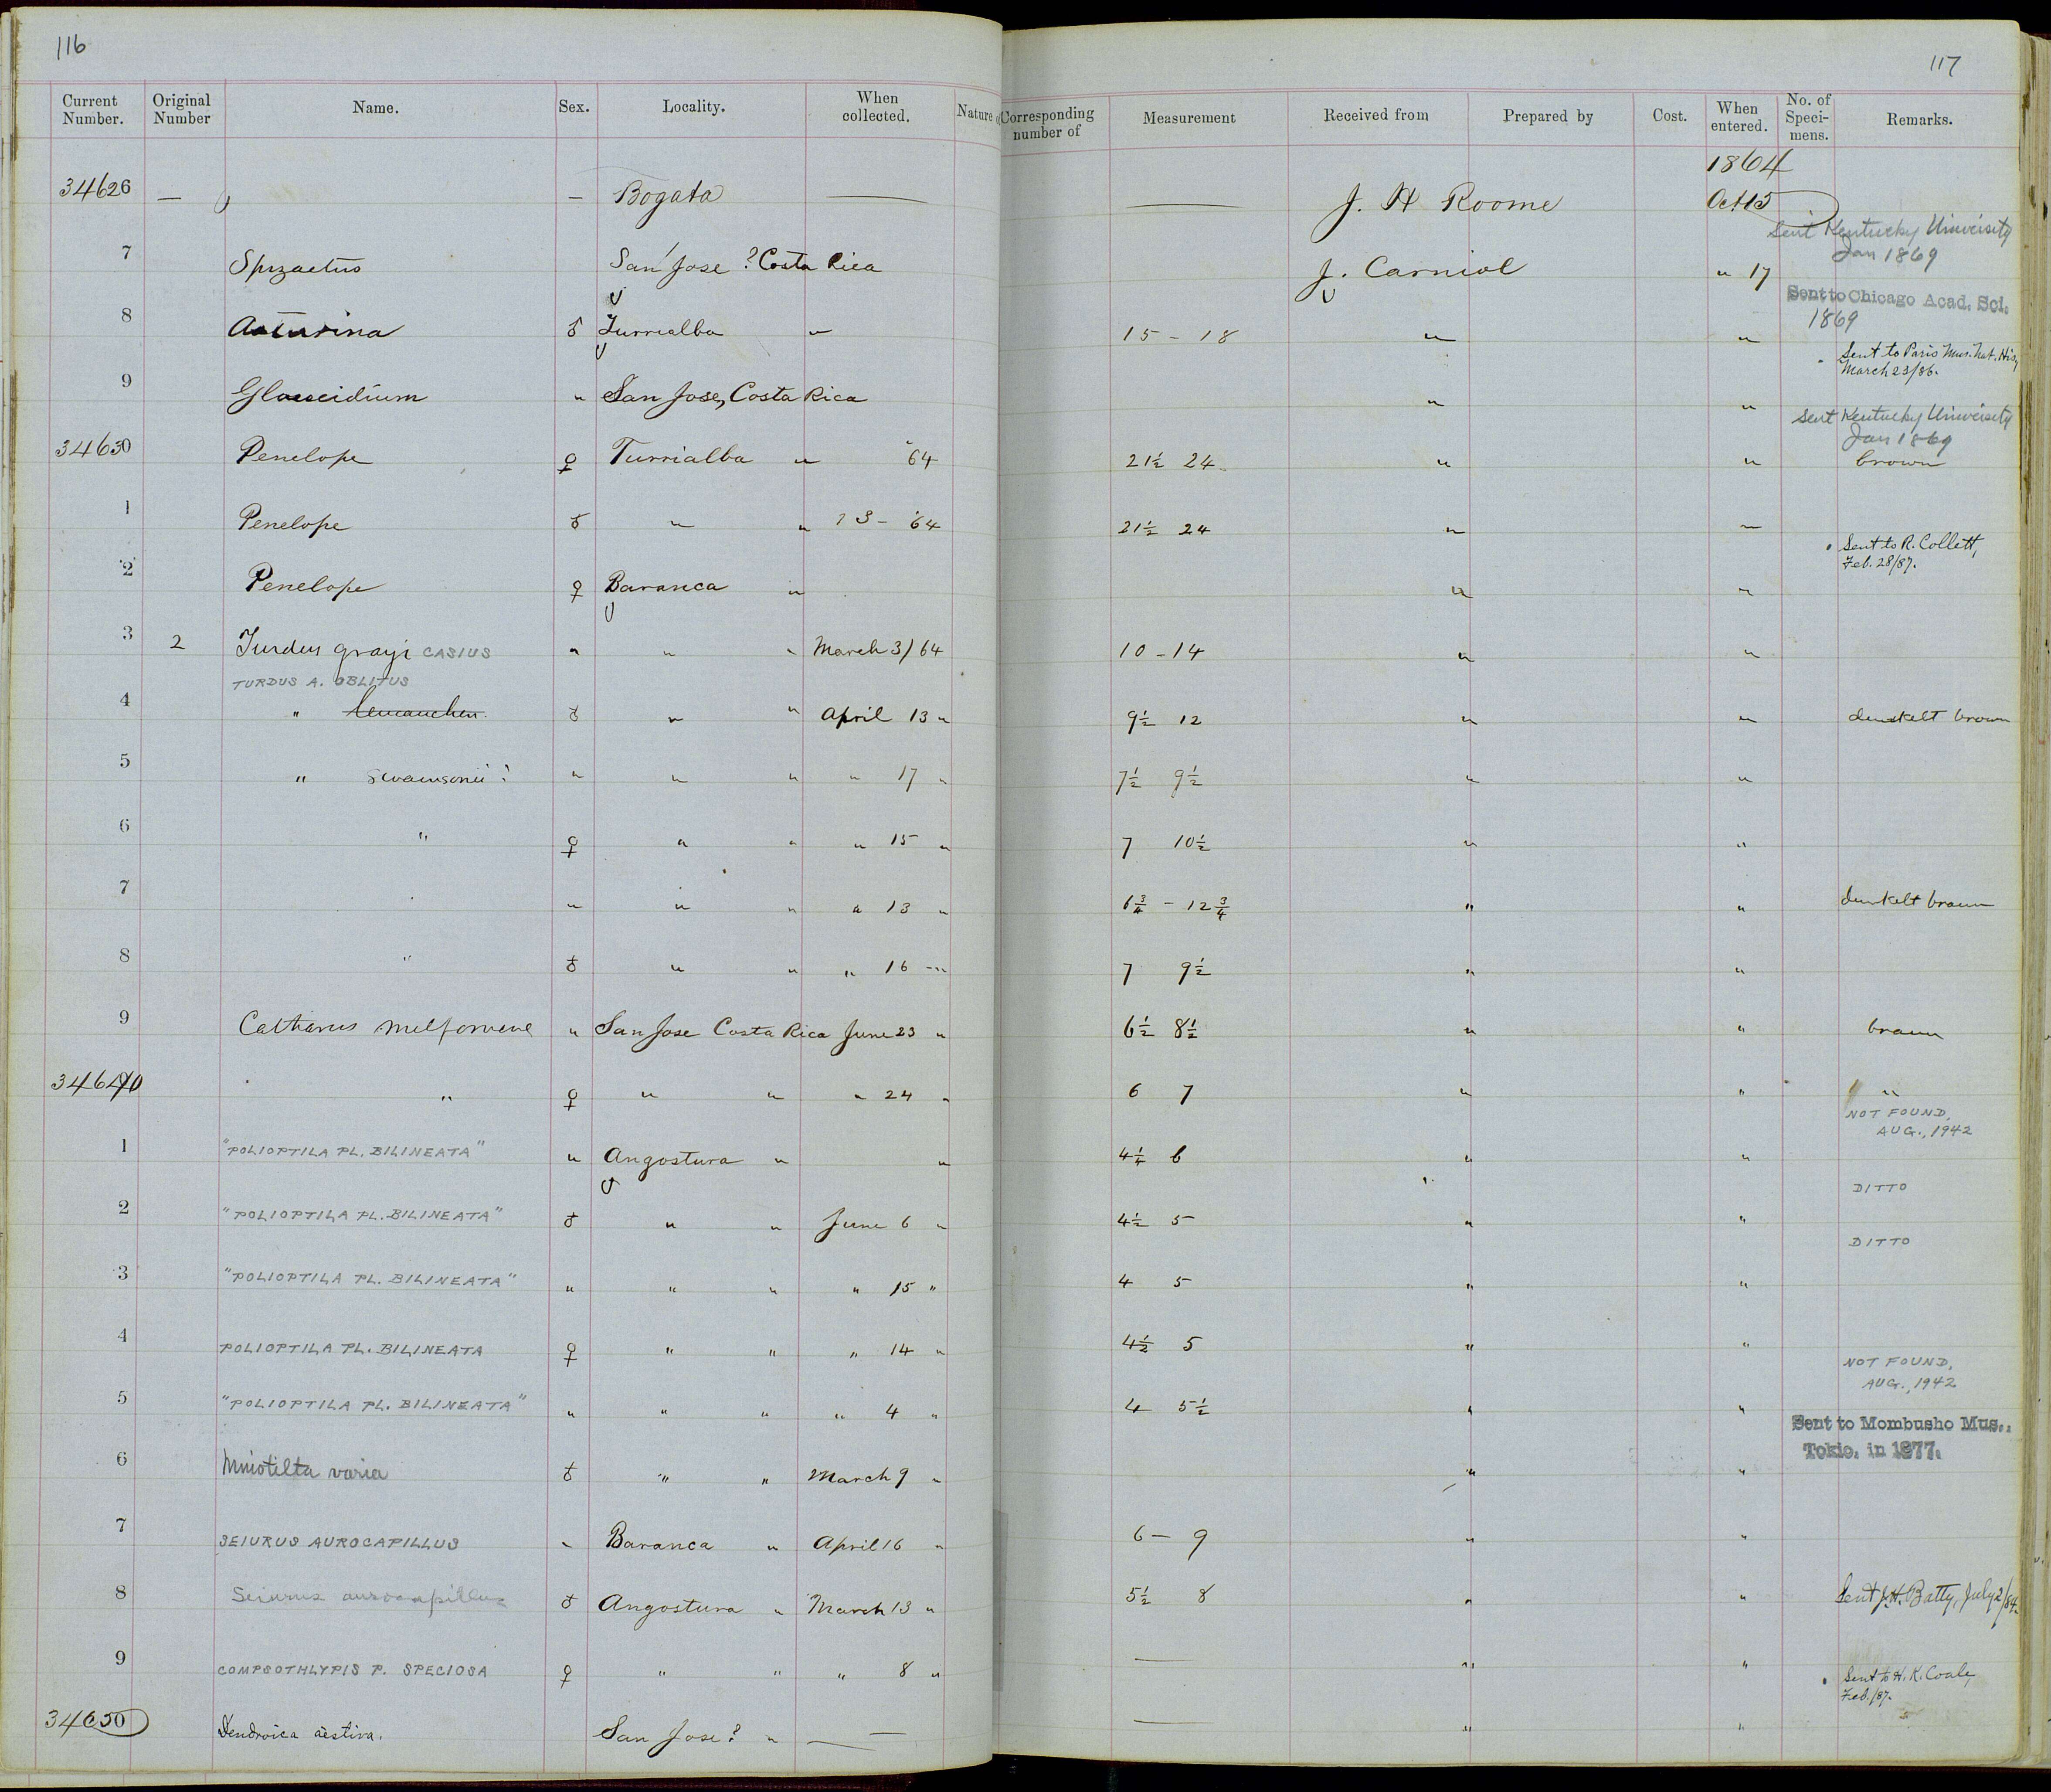 116
117
Current Number. Original Number Name. Sex. Locality. When collected. Nature Corresponding number of Measurement Received from Prepared by Cost. When entered. No. of Speci-mens. Remarks.
1864
34626 — — Bogata — — J. H Roome Oct 15
Sent Kentucky University
Jan 1869
7 Spizaetus San Jose? Costa Rica J. Carniol " 17
Sent to Chicago Acad. Sci.
1869
8 Asturina ♂ Turrialba " 15 - 18 " "
Sent to Paris Mus. Nat. His
March 23/86.
9 Glaucidium " San Jose, Costa Rica " "
Sent Kentucky University
Jan 1869
34630 Penelope ♀ Turrialba " '64 21½ 24 " " brown
1 Penelope ♂ " " 13 - '64 21½ 24 " "
Sent to R. Collett,
Feb. 28/87.
2 Penelope ♀ Baranca " " "
3 2 Turdus grayi CASIUS " " " March 3/64 10 - 14 " "
TURDUS A. OBLITUS
4 " leucauchen ♂ " " April 13 " 9½ 12 " " dunkelt brown
5 " swainsonii? " " " " 17 " 7½ 9½ " "
6 " ♀ " " " 15 " 7 10½ " "
7 " " " " 13 " 6¾ - 12¾ " " dunkelt braun
8 " ♂ " " " 16 " 7 9½ " "
9 Catharus melpomene " San Jose Costa Rica June 23 " 6½ 8½ " " braun
34640 " ♀ " " " 24 " 6 7 " " "
NOT FOUND,
AUG., 1942
1 "POLIOPTILA PL. BILINEATA" " Angostura " " 4¼ 6 " "
DITTO
2 "POLIOPTILA PL. BILINEATA" ♂ " " June 6 " 4½ 5 " "
DITTO
3 "POLIOPTILA PL. BILINEATA" " " " " 15 " 4 5 " "
4 POLIOPTILA PL. BILINEATA ♀ " " " 14 " 4½ 5 " "
NOT FOUND,
AUG., 1942
5 "POLIOPTILA PL. BILINEATA" " " " " 4 " 4 5½ " "
Sent to Mombusho Mus.,
Tokio. in 1877.
6 Mniotilta varia ♂ " " March 9 " " "
7 SEIURUS AUROCAPILLUS " Baranca " April 16 " 6 — 9 " "
8 Seiurus aurocapillus ♂ Angostura " March 13 " 5½ 8 " " Sent J. H. Batty, July 2/84.
9 COMPSOTHLYPIS P. SPECIOSA ♀ " " " 8 " — " "
Sent to H. K. Coale,
Feb./87.
34650 Dendroica aestiva. San Jose? " — — " "